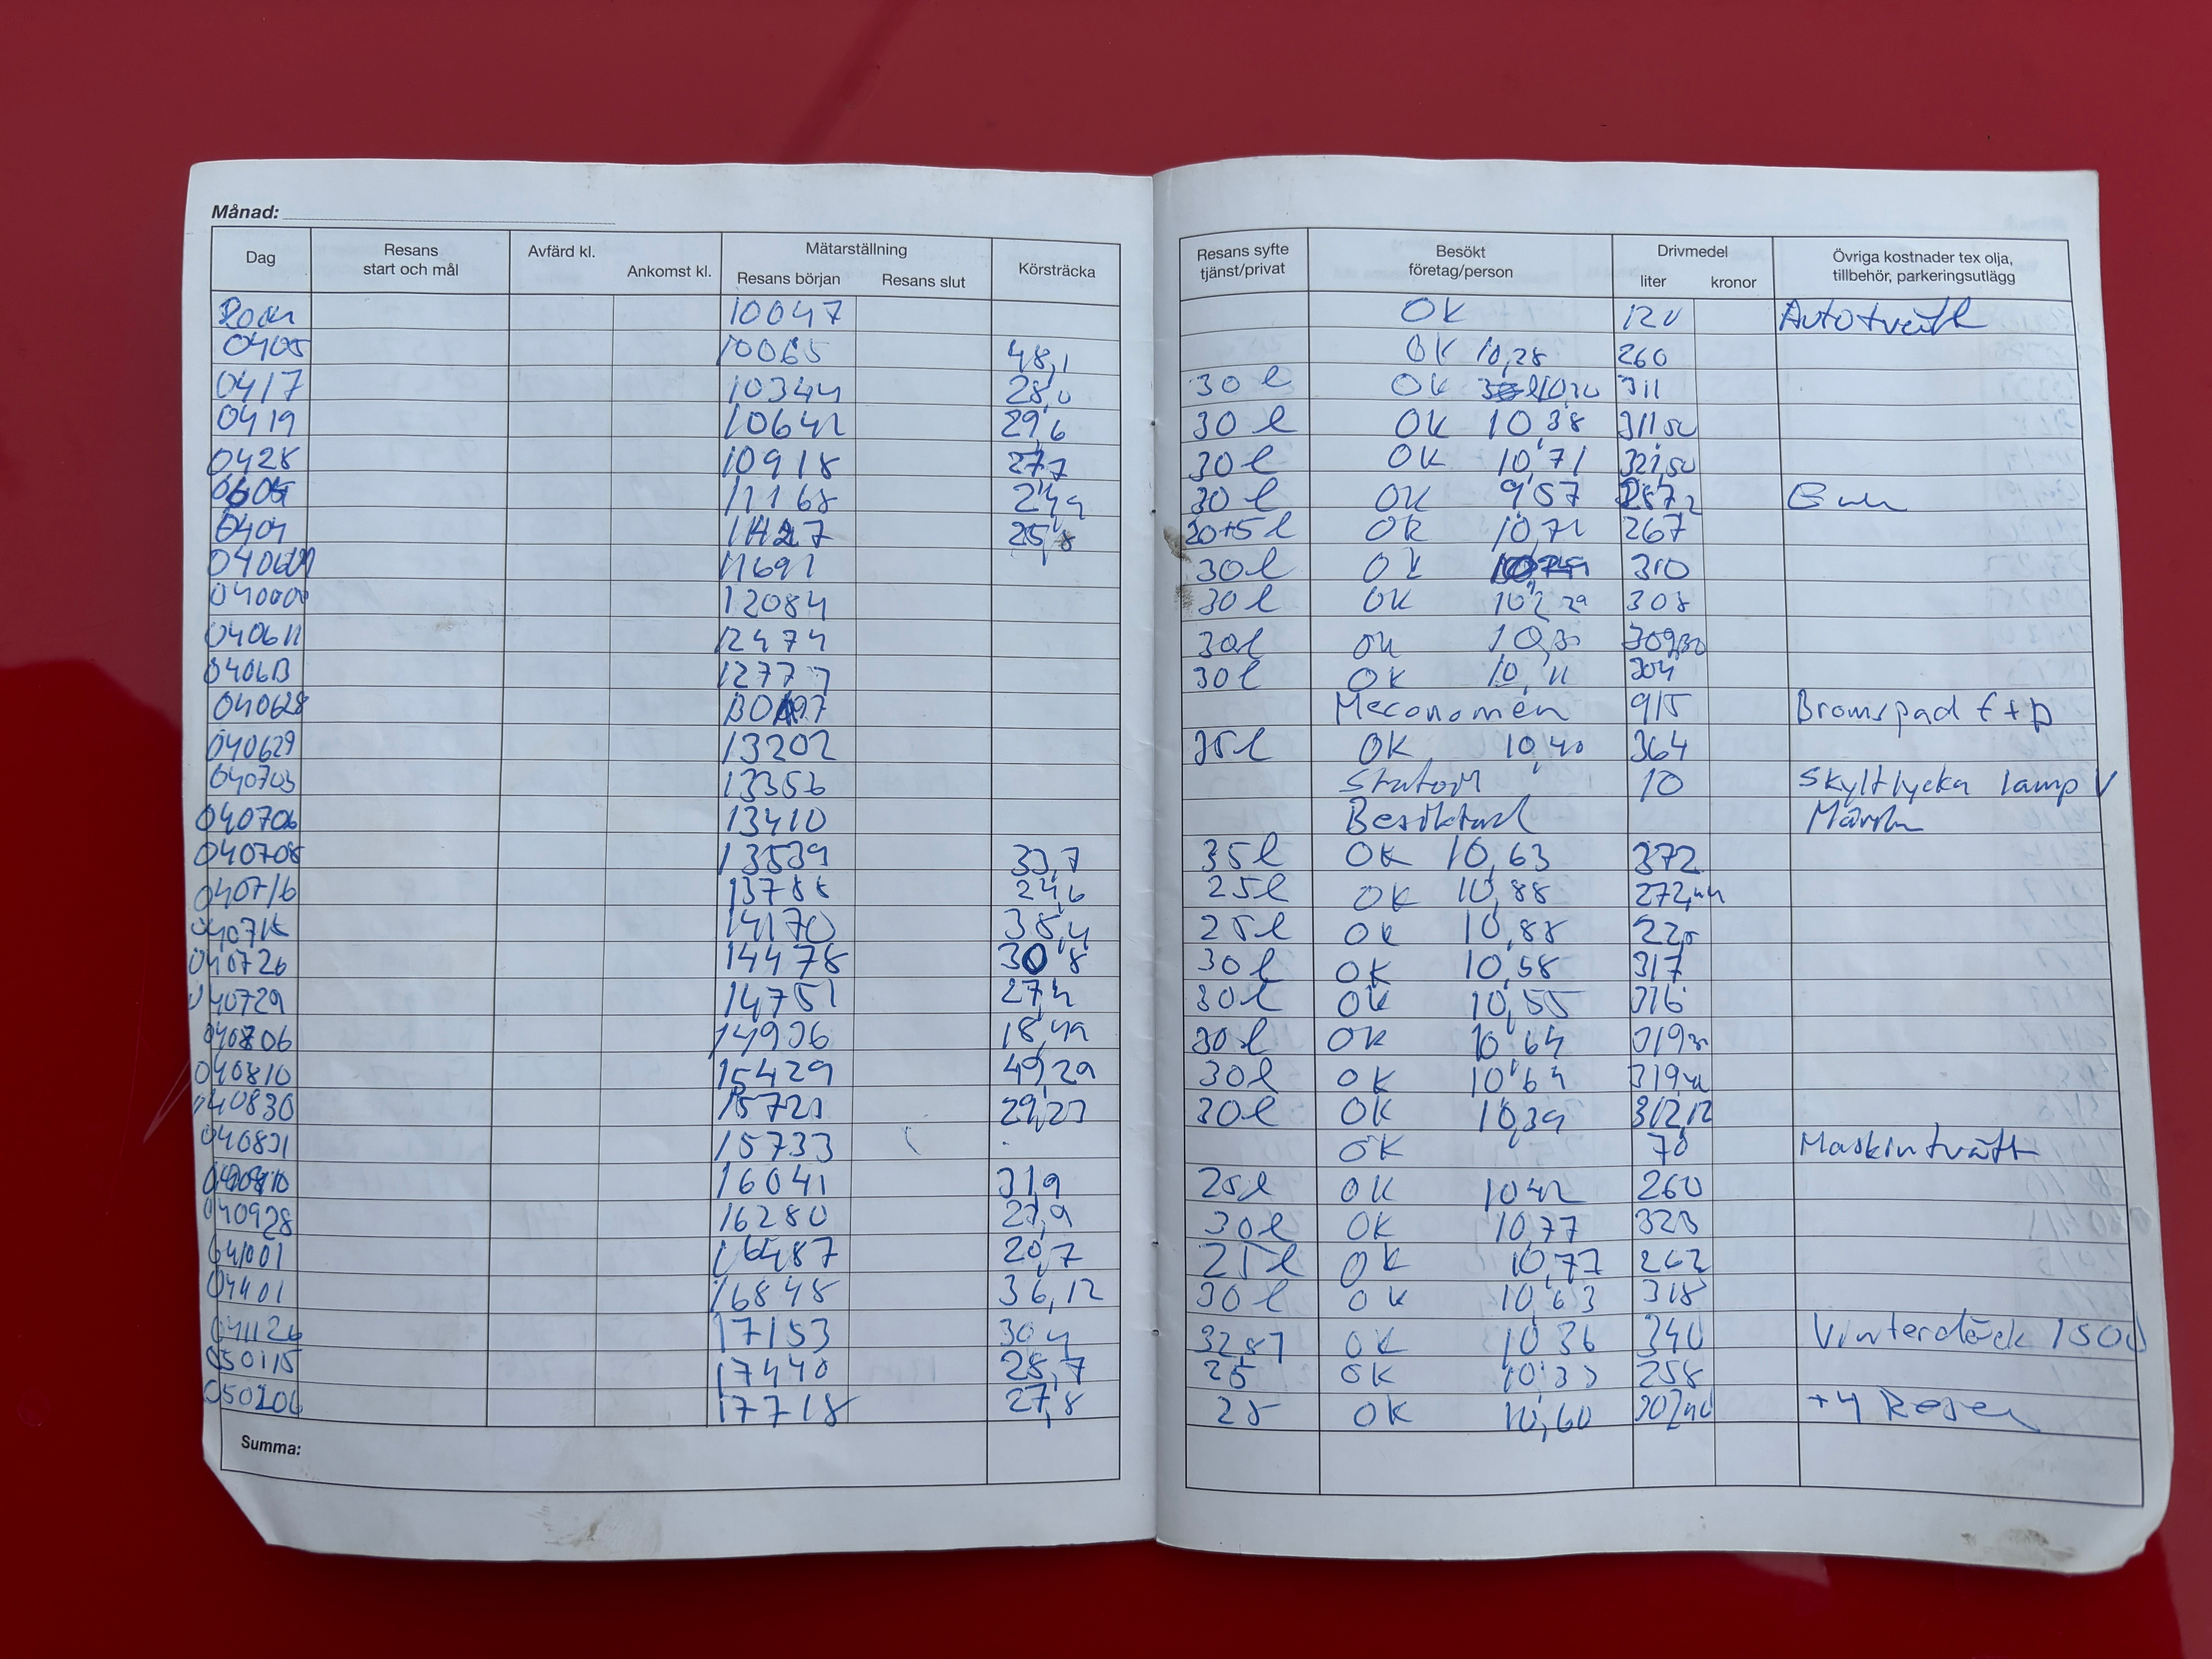 Månad:
Dag Resans start och mål Avfärd kl. Ankomst kl. Mätarställning Resans början Resans slut Körsträcka Resans syfte tjänst/privat Besökt företag/person Drivmedel liter kronor Övriga kostnader tex olja, tillbehör, parkeringsutlägg
10047 OK Autotvätt
0405 10065 48,1 OK 10,28 260
0417 10344 28,0 30 l OK 311
0419 10642 29,6 30 l OK 10,38 311 50
0428 10918 27,7 30 l OK 10,71 321,50
11168 24,9 30 l OK 9,57
11427 25,8 20+5 l OK 10,71 267
11691 30 l OK 310
12084 30 l OK 308
040611 12474 30 l OK 309,30
040613 12777 30 l OK 10,11 304
040628 Meconomen 915 Bromspad f+b
040629 13202 35 l OK 10,40 364
040703 13356 Statoil 10 Skyltlycka lamp V
040706 13410 Besiktad Märsta
040708 13539 33,7 35 l OK 10,63 372
040716 13788 24,6 25 l OK 10,88
14170 38,4 25 l OK 10,88
040726 14478 30,8 30 l OK 10,58 317
040729 14751 27,4 30 l OK 10,55 316
040806 14936 18,49 30 l OK 10,64
040810 15429 49,29 30 l OK 10,64
040830 15721 29,23 30 l OK 10,39 312,12
040831 15733 OK 70 Maskintvätt
16041 31,9 25 l OK 10,42 260
040928 16280 23,9 30 l OK 10,77 323
041001 16487 20,7 25 l OK 10,77 262
16848 36,12 30 l OK 10,63 318
041126 17153 30,4 32,87 OK 10,36 340 Vinterdäck 1500
050115 17440 28,7 25 OK 10,33 258
050206 17718 27,8 OK 10,60 +4 Reser
Summa: